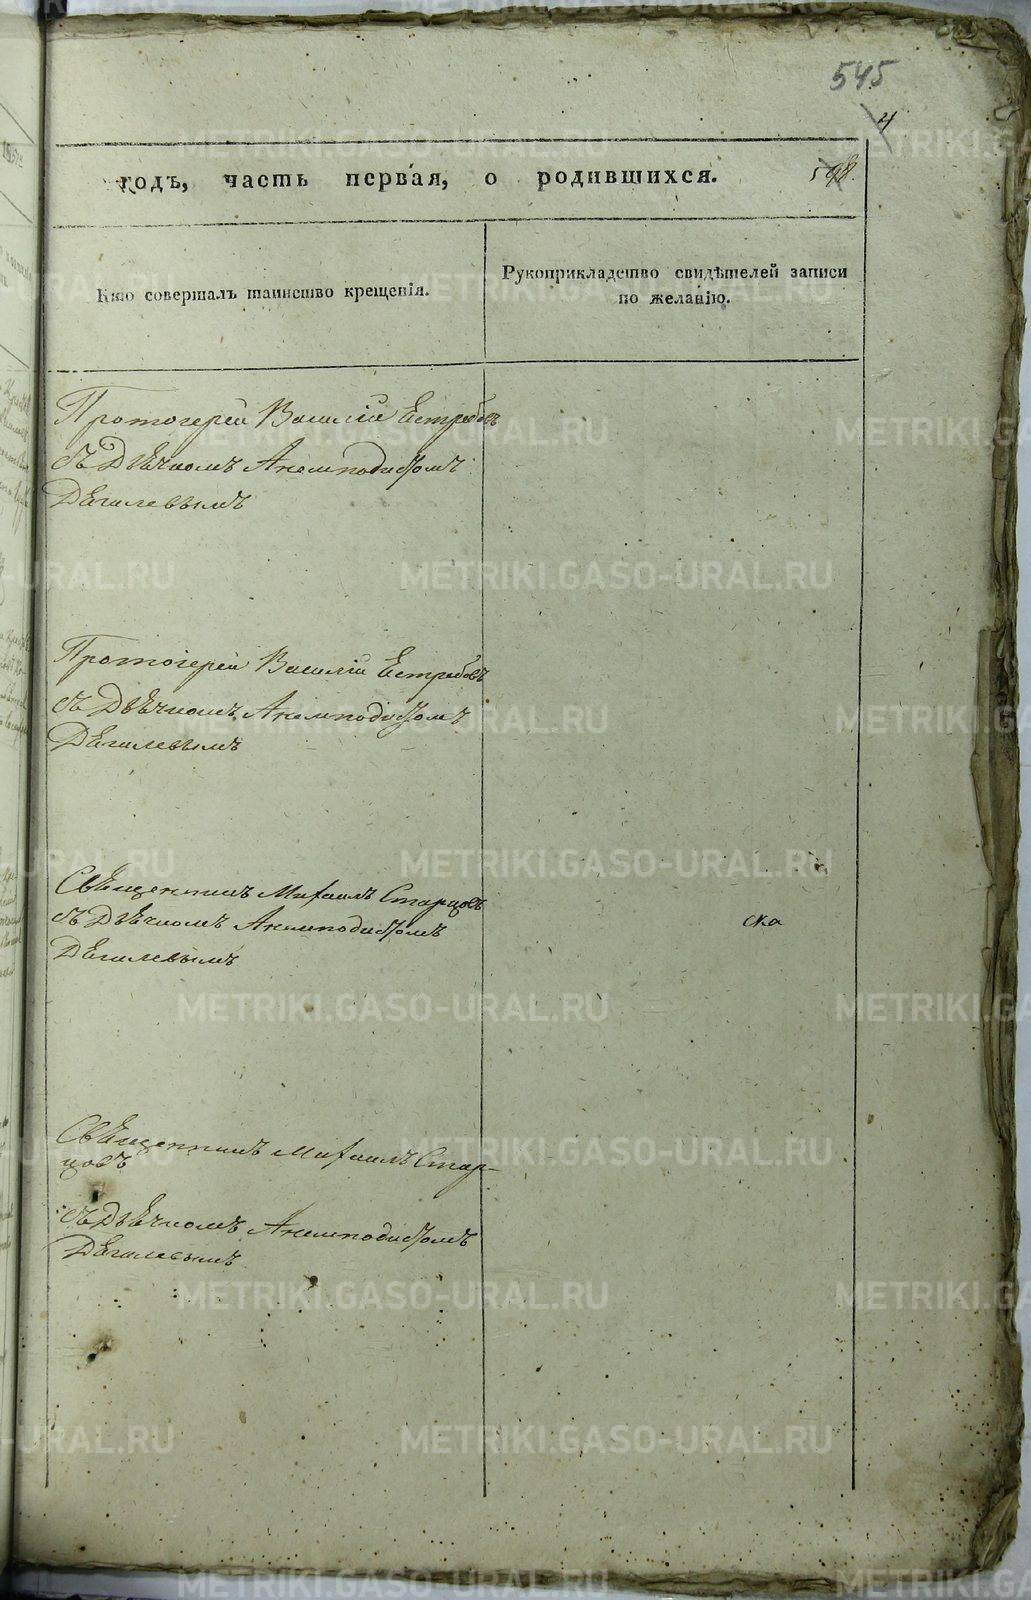 545
4
598.
годъ, часть первая, о родившихся.
Кто совершалъ таинство крещенія.
Рукоприкладство свидѣтелей записи
по желанію.
Протоіерей Василій Ястребовъ
съ Дьячкомъ Анемподистомъ
Дягилевымъ
Протоіерей Василій Ястребовъ
съ Дьячкомъ Анемподистомъ
Дягилевымъ
Священникъ Михаилъ Старцовъ
съ Дьячкомъ Анемподистомъ
Дягилевымъ
ска
Священникъ Михаилъ Стар-
цовъ
съ Дьячкомъ Анемподистомъ
Дягилевымъ
METRIKI.GASO-URAL.RU